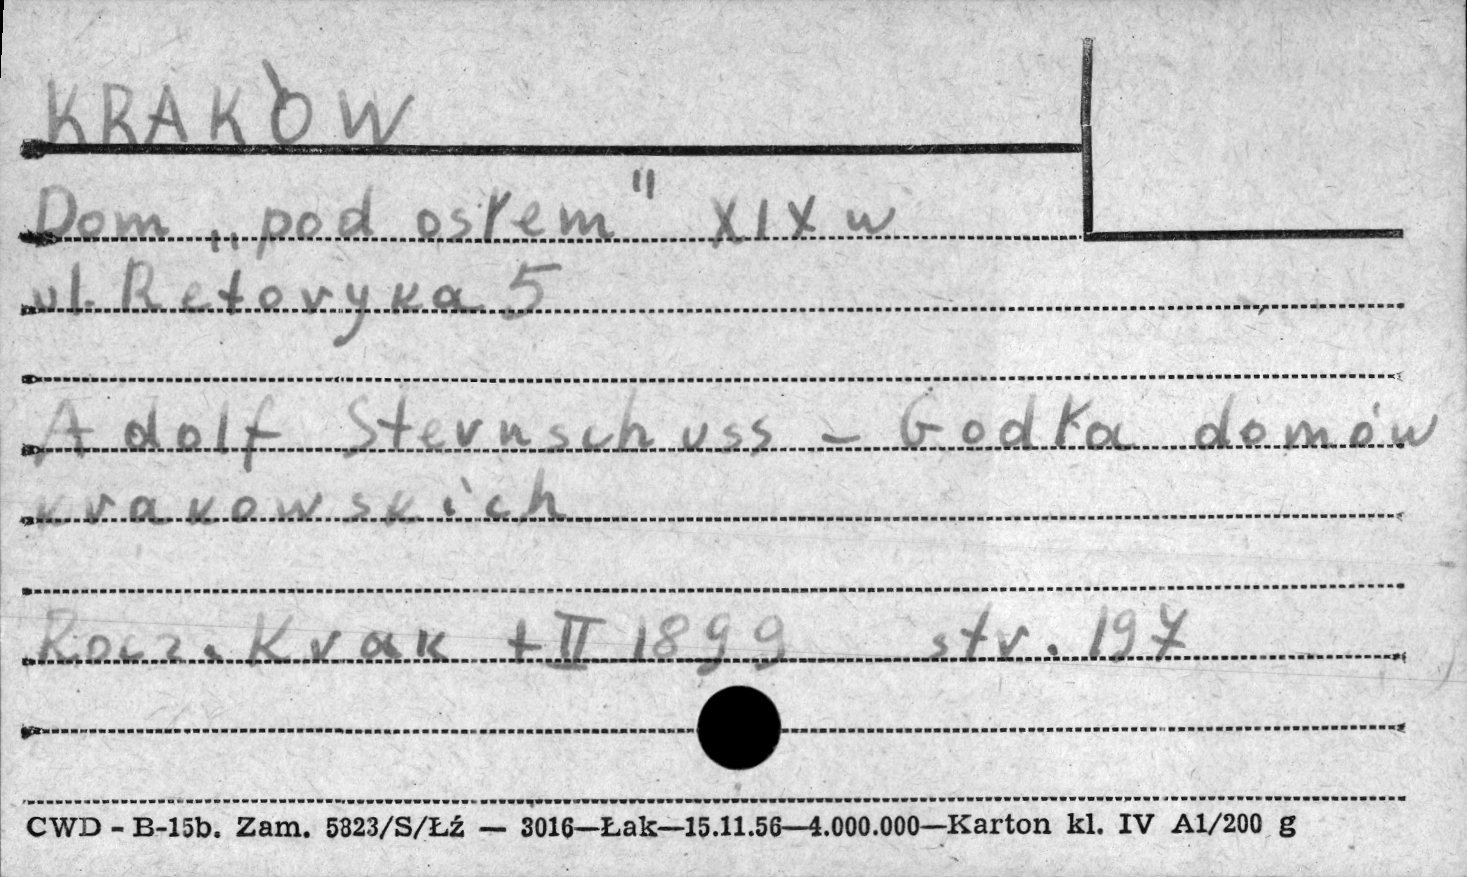 KRAKÓW
Dom „pod osłem" XIX w
ul. Retoryka 5
Adolf Sternschuss – Godła domów
krakowskich
Rocz. Krak t II 1899 str. 197
CWD - B-15b. Zam. 5823/S/Łź — 3016—Łak—15.11.56—4.000.000—Karton kl. IV A1/200 g